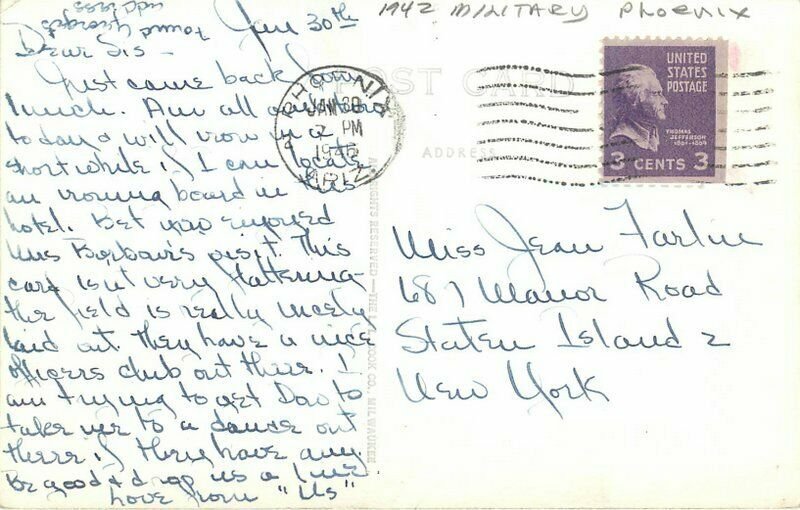 found George's
address
Jan 30th
1942 MILITARY PHOENIX
Dear Sis -
Just came back from
lunch. Am all
today & will iron in a
short while if I can locate
an ironing board in this
hotel. Bet you enjoyed
Mrs Barbour's visit. This
card isn't very flattering -
the field is really nicely
laid out. They have a nice
officers club out there. I
am trying to get Dav to
take me to a dance out
there if they have any.
Be good & drop us a line
Love from "Us"
POST CARD
ADDRESS
ALL RIGHTS RESERVED — THE L. L. COOK CO., MILWAUKEE
PHOENIX
JAN 30
PM
ARIZ.
UNITED
STATES
POSTAGE
THOMAS
JEFFERSON
1801-1809
3 CENTS 3
Miss Jean Farlin
687 Manor Road
Staten Island 2
New York